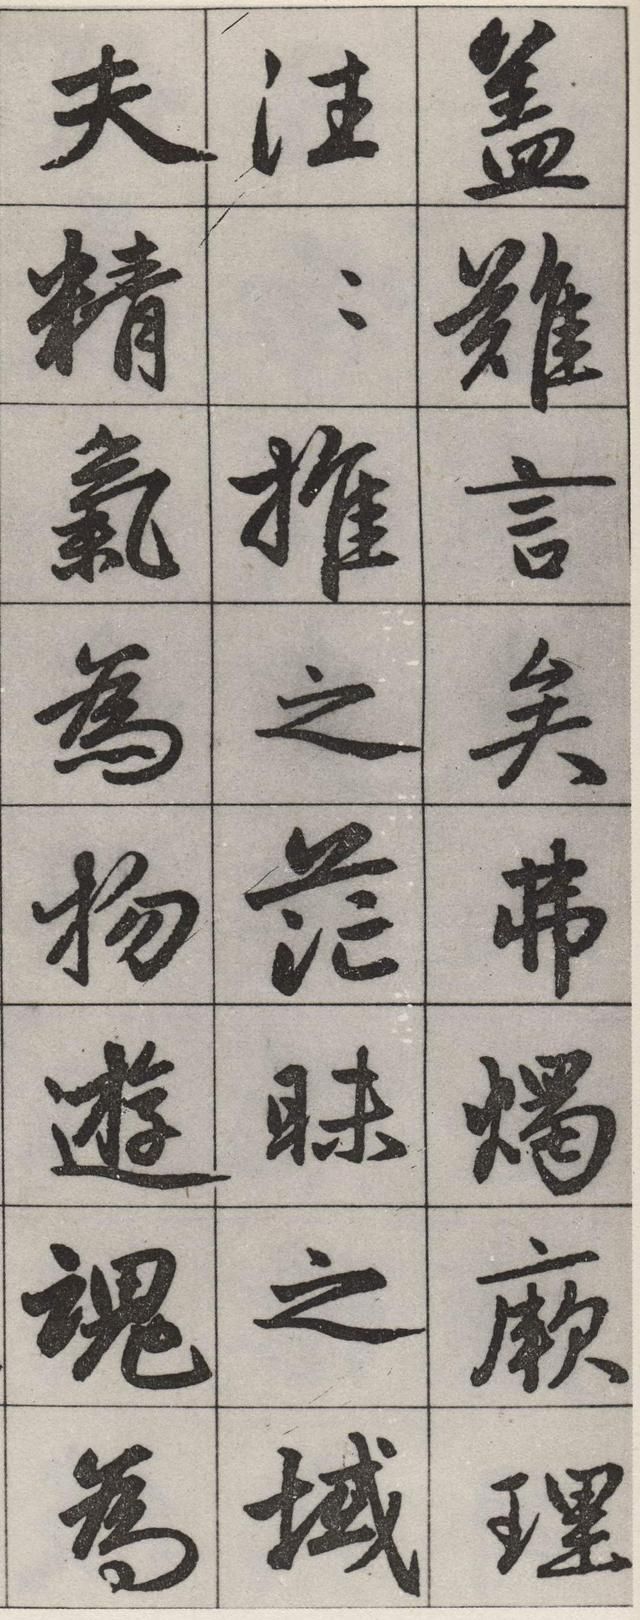 蓋難言矣弗燭厥理
往〻推之茫昧之域
夫精氣為物遊魂為